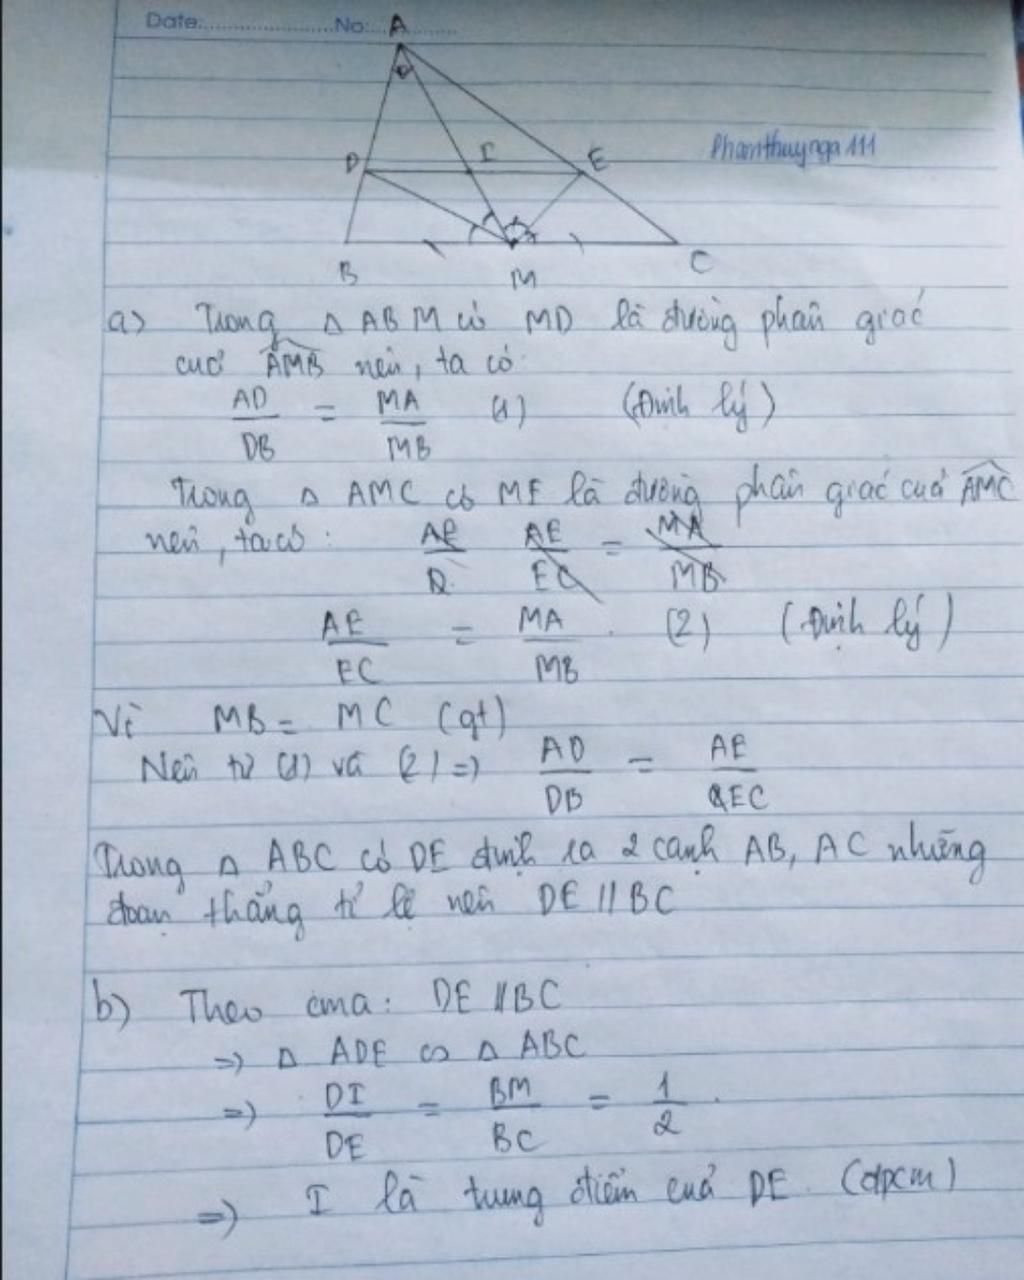 Date:........................No:...................
A
D I E
Phamthuynga 111
B M C
a) Trong △ ABM có MD là đường phân giác
của AMB nên, ta có:
AD/DB = MA/MB (1) (Định lý)
Trong △ AMC có ME là đường phân giác của AMC
nên, ta có: AE AE/EC = MA/MB
AE/EC = MA/MB (2) (Định lý)
Vì MB = MC (gt)
Nên từ (1) và (2) => AD/DB = AE/EC
Trong △ ABC có DE định ra 2 cạnh AB, AC những
đoạn thẳng tỉ lệ nên DE // BC
b) Theo cma: DE // BC
=> △ ADE ∽ △ ABC
=> DI/DE = BM/BC = 1/2.
=> I là trung điểm của DE. (đpcm)